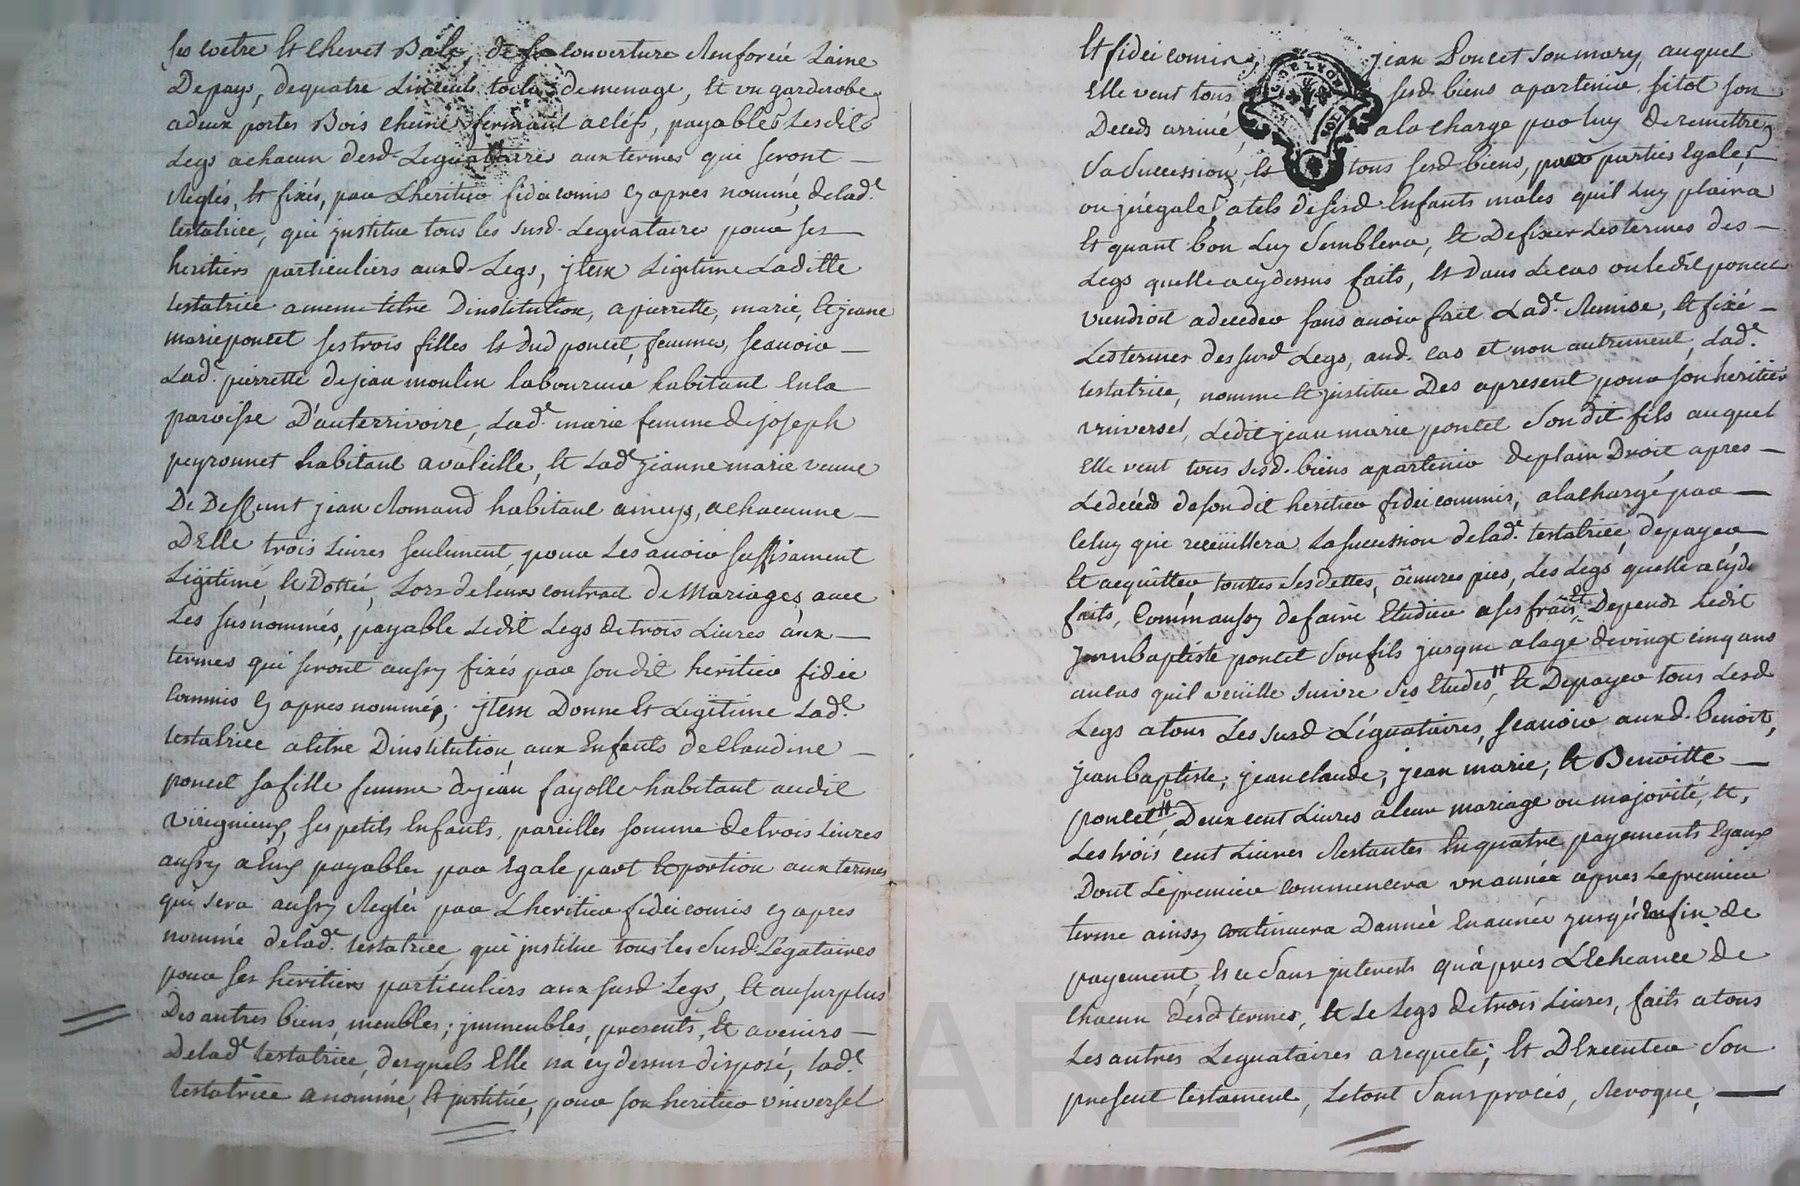 ses coetre et chevet Bale, de sa couverture Renforcée Laine
Depays, dequatre Linceuls toile demenage, et vn garderobe
adeux portes Bois chene fermant aclefs, payables Lesdits
Legs achacun desd. Leguataires aux termes qui seront
Reglés, et fixés, par L'heritier fideicomis cy apres nommé, delad.e
testatrice, qui jnstitue tous les susd. Leguataires pour ses
heritiers particuliers auxd. Legs, jtem Legitime Laditte
testatrice ameme titre D'institution, apierrette, marie, et jeane
marie poncet ses trois filles et dud poncet, femmes, scauoir
Lad. pierrette dejean moulin laboureur habitant enla
paroisse D'auterrivoire, Lad.e marie femme de joseph
peyronnet habitant avaleille, et Lad. jeanne marie veuue
De Deffunt jean Romand habitant , achacunne
DElle trois Liures seulement, pour Les auoir suffisament
Légitimé, et Dottée, Lors deleurs contract de Mariages, auec
Les susnommés, payable Ledit Legs detrois Liures aux
termes qui seront aussy fixés par son dit heritier fidei
commis cy apres nommé; jtem Donne et Legitime Lad.e
testatrice atitre Dinstitution, aux Enfants de Claudine
poncet safille femme dejean fayolle habitant audit
virignieux, ses petits Enfants, pareilles somme detrois Liures
aussy aEux payables par Egale part et portion aux termes
qui sera aussy Reglée par L'heritier fideicomis cy apres
nommé delad. testatrice, qui jnstitue tous les Susd. Légataires
pour ses heritiers particuliers aux susd. Legs, et ausurplus
Des autres biens, meubles, jmmeubles, presents, et avenirs
Delad.e testatrice, desquels Elle na cy dessus disposé, Lad.e
testatrice anommé, et jnstitué, pour son heritier vniversel
et fideicomis, jean Poncet son mary, auquel
Elle veut tous sesd. biens apartenir sitot son
Deceds arrivé alacharge par luy Deremettre
Sa Succession, et tous sesd. biens, par parties Egales
ou jnégale, atels desesd. Enfants males quil Luy plaira
et quant bon Luy Semblera, et Defixer Les termes des
Legs quelle acy dessus faits, et Dans Le cas ou ledit poncet
viendroit adeceder sans auoir fait Lad.e Remise, et fixé
Les termes des susd. Legs, aud. cas et non autrement, Lad.e
testatrice, nomme et jnstitue Des apresent pour son heritier
vniversel, Ledit jean marie poncet Son dit fils auquel
Elle veut tous sesd. biens apartenir deplain Droit apres
Le décéd deson dit heritier fideicommis, alacharge par
Celuy qui receüillera La succession delad.e testatrice, depayer
et acquitter toutes ses dettes, œuures pies, Les Legs quelle acyde
faits, Comm'aussy defaire Etudier a ses frais, et Depends Ledit
jean baptiste poncet Son fils jusque alage devingt cinq ans
aucas quil veüille suivre ses Etudes, et Depayer tous Lesd.
Legs atous Les susd. Léguataires, scauoir auxd. benoit,
jean baptiste, jean claude, jean marie, et Benoitte
poncet, Deux cent Liures aleur mariage ou majorité, et,
Les trois cent Liures Restantes Enquatre payements Egaux
Dont Lepremier commencera vn année apres Le premier
terme ainsy continuera Dannée En année jusqu'Enfin de
payement, et ce Sans jnterests qu'apres L'Echeance de
Chacun desd. termes, et Le Legs detrois Liures, faits atous
Les autres Leguataires arequete; et D'Executer Son
present testament, Letout Sans procés, Revoque,
CHAREYRON